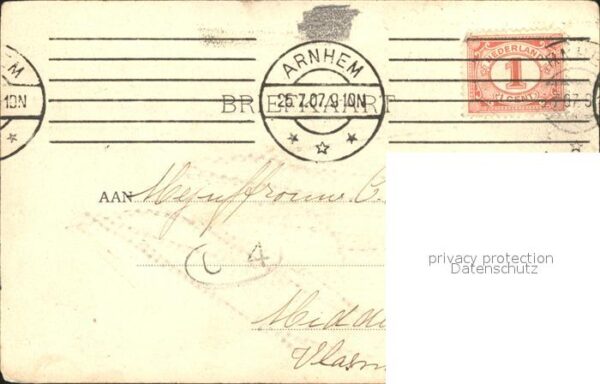 ARNHEM
25.7.07.9-10N
BRIEFKAART
NEDERLAND
1
CENT
M
10N
AAN Mejuffrouw C.
privacy protection
Datenschutz
( 4
Midde
Vlasm